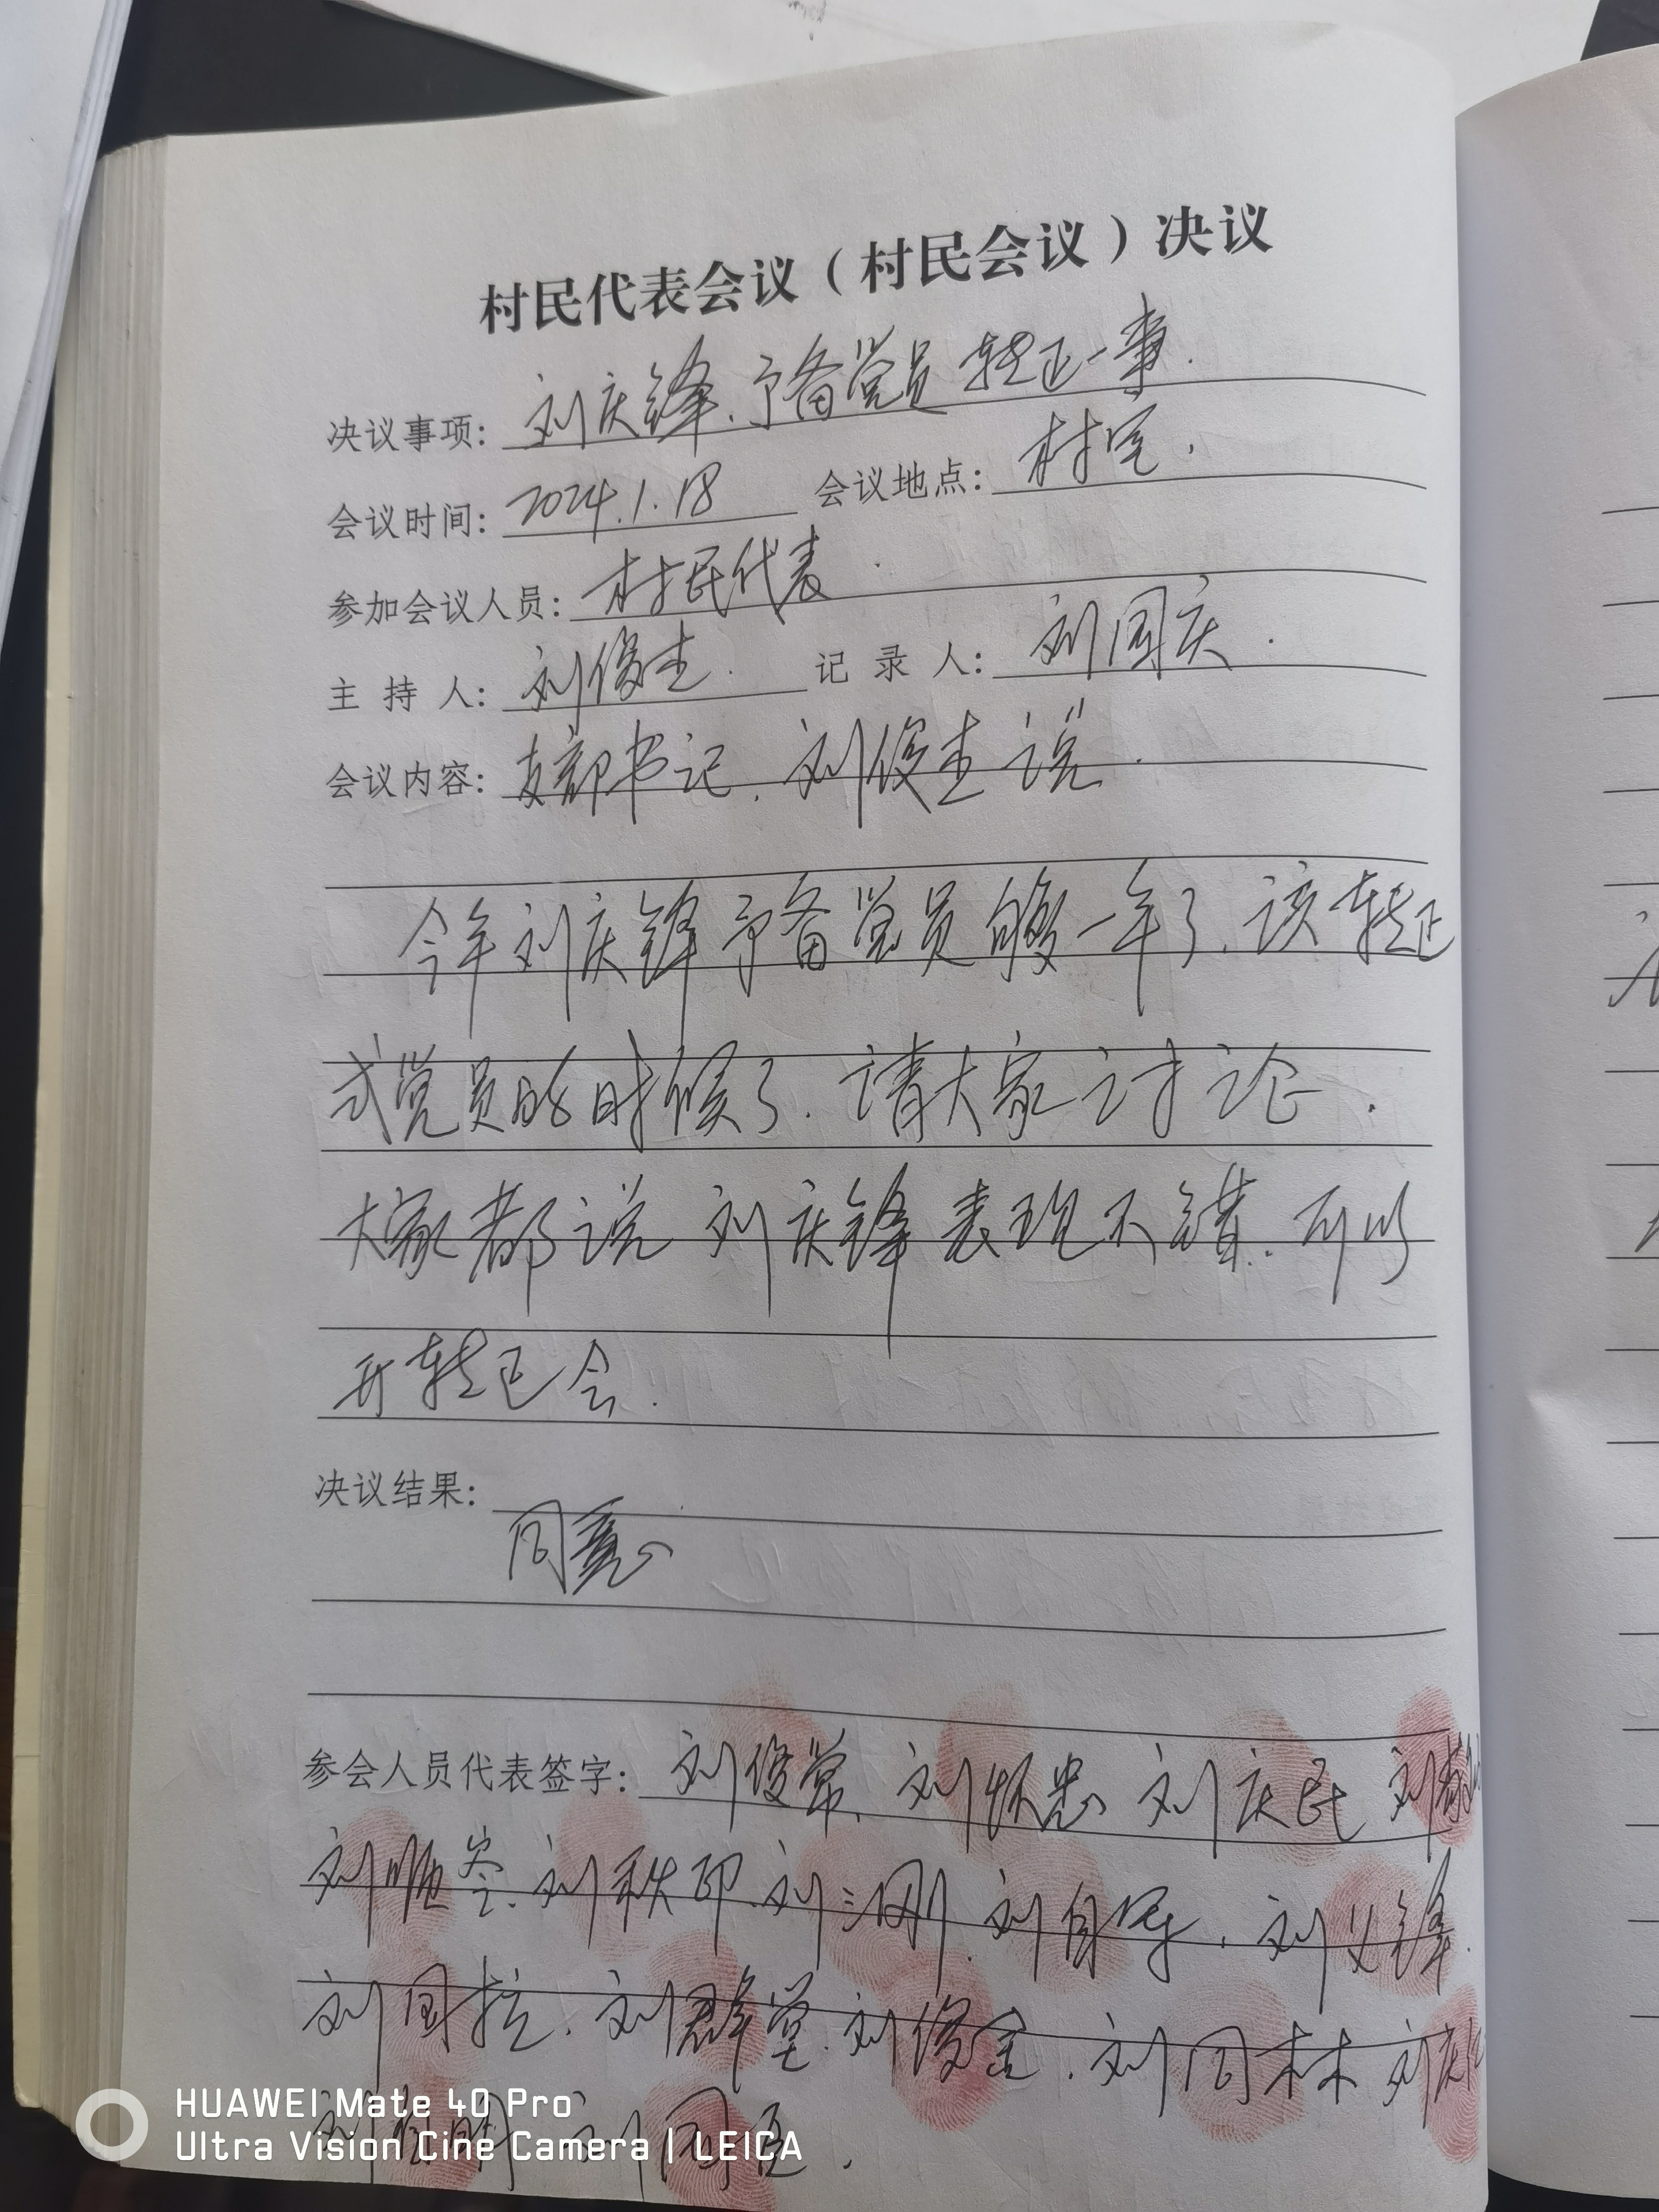 村民代表会议（村民会议）决议
决议事项：刘庆锋.予备党员转正一事.
会议时间：2024.1.18 会议地点：村室.
参加会议人员：村民代表.
主持人：刘俊杰. 记录人：刘国庆.
会议内容：支部书记.刘俊杰说.
今年刘庆锋予备党员够一年了.该转正
式党员的时候了.请大家讨论.
大家都说刘庆锋表现不错.可以
开转正会.
决议结果：
同意
参会人员代表签字：刘俊常.刘怀忠 刘庆民 刘
刘顺岑.刘秋印.刘三刚.刘自军.刘义锋.
刘国拉.刘群堂.刘俊金.刘同林 刘庆
刘 明 刘同
HUAWEI Mate 40 Pro
Ultra Vision Cine Camera | LEICA